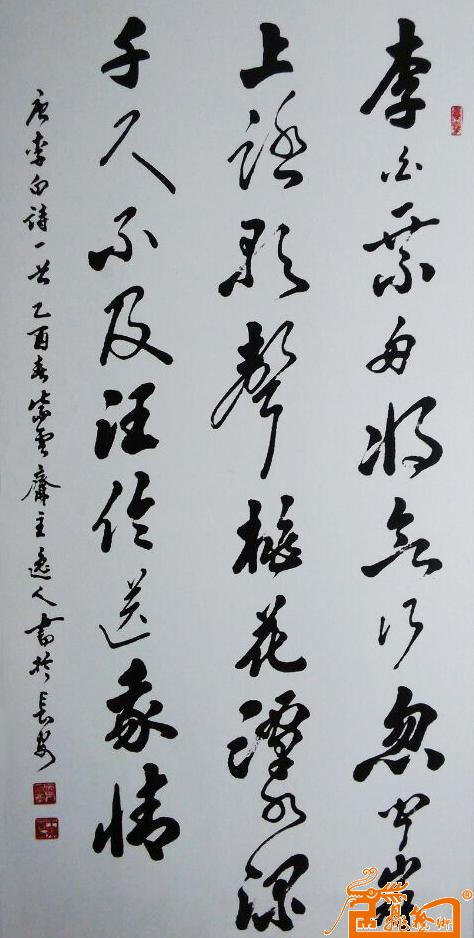 李白乘舟將欲行忽聞岸
上踏歌聲桃花潭水深
千尺不及汪倫送我情
唐李白詩一首乙酉春紫雲齋主逸人書於長安